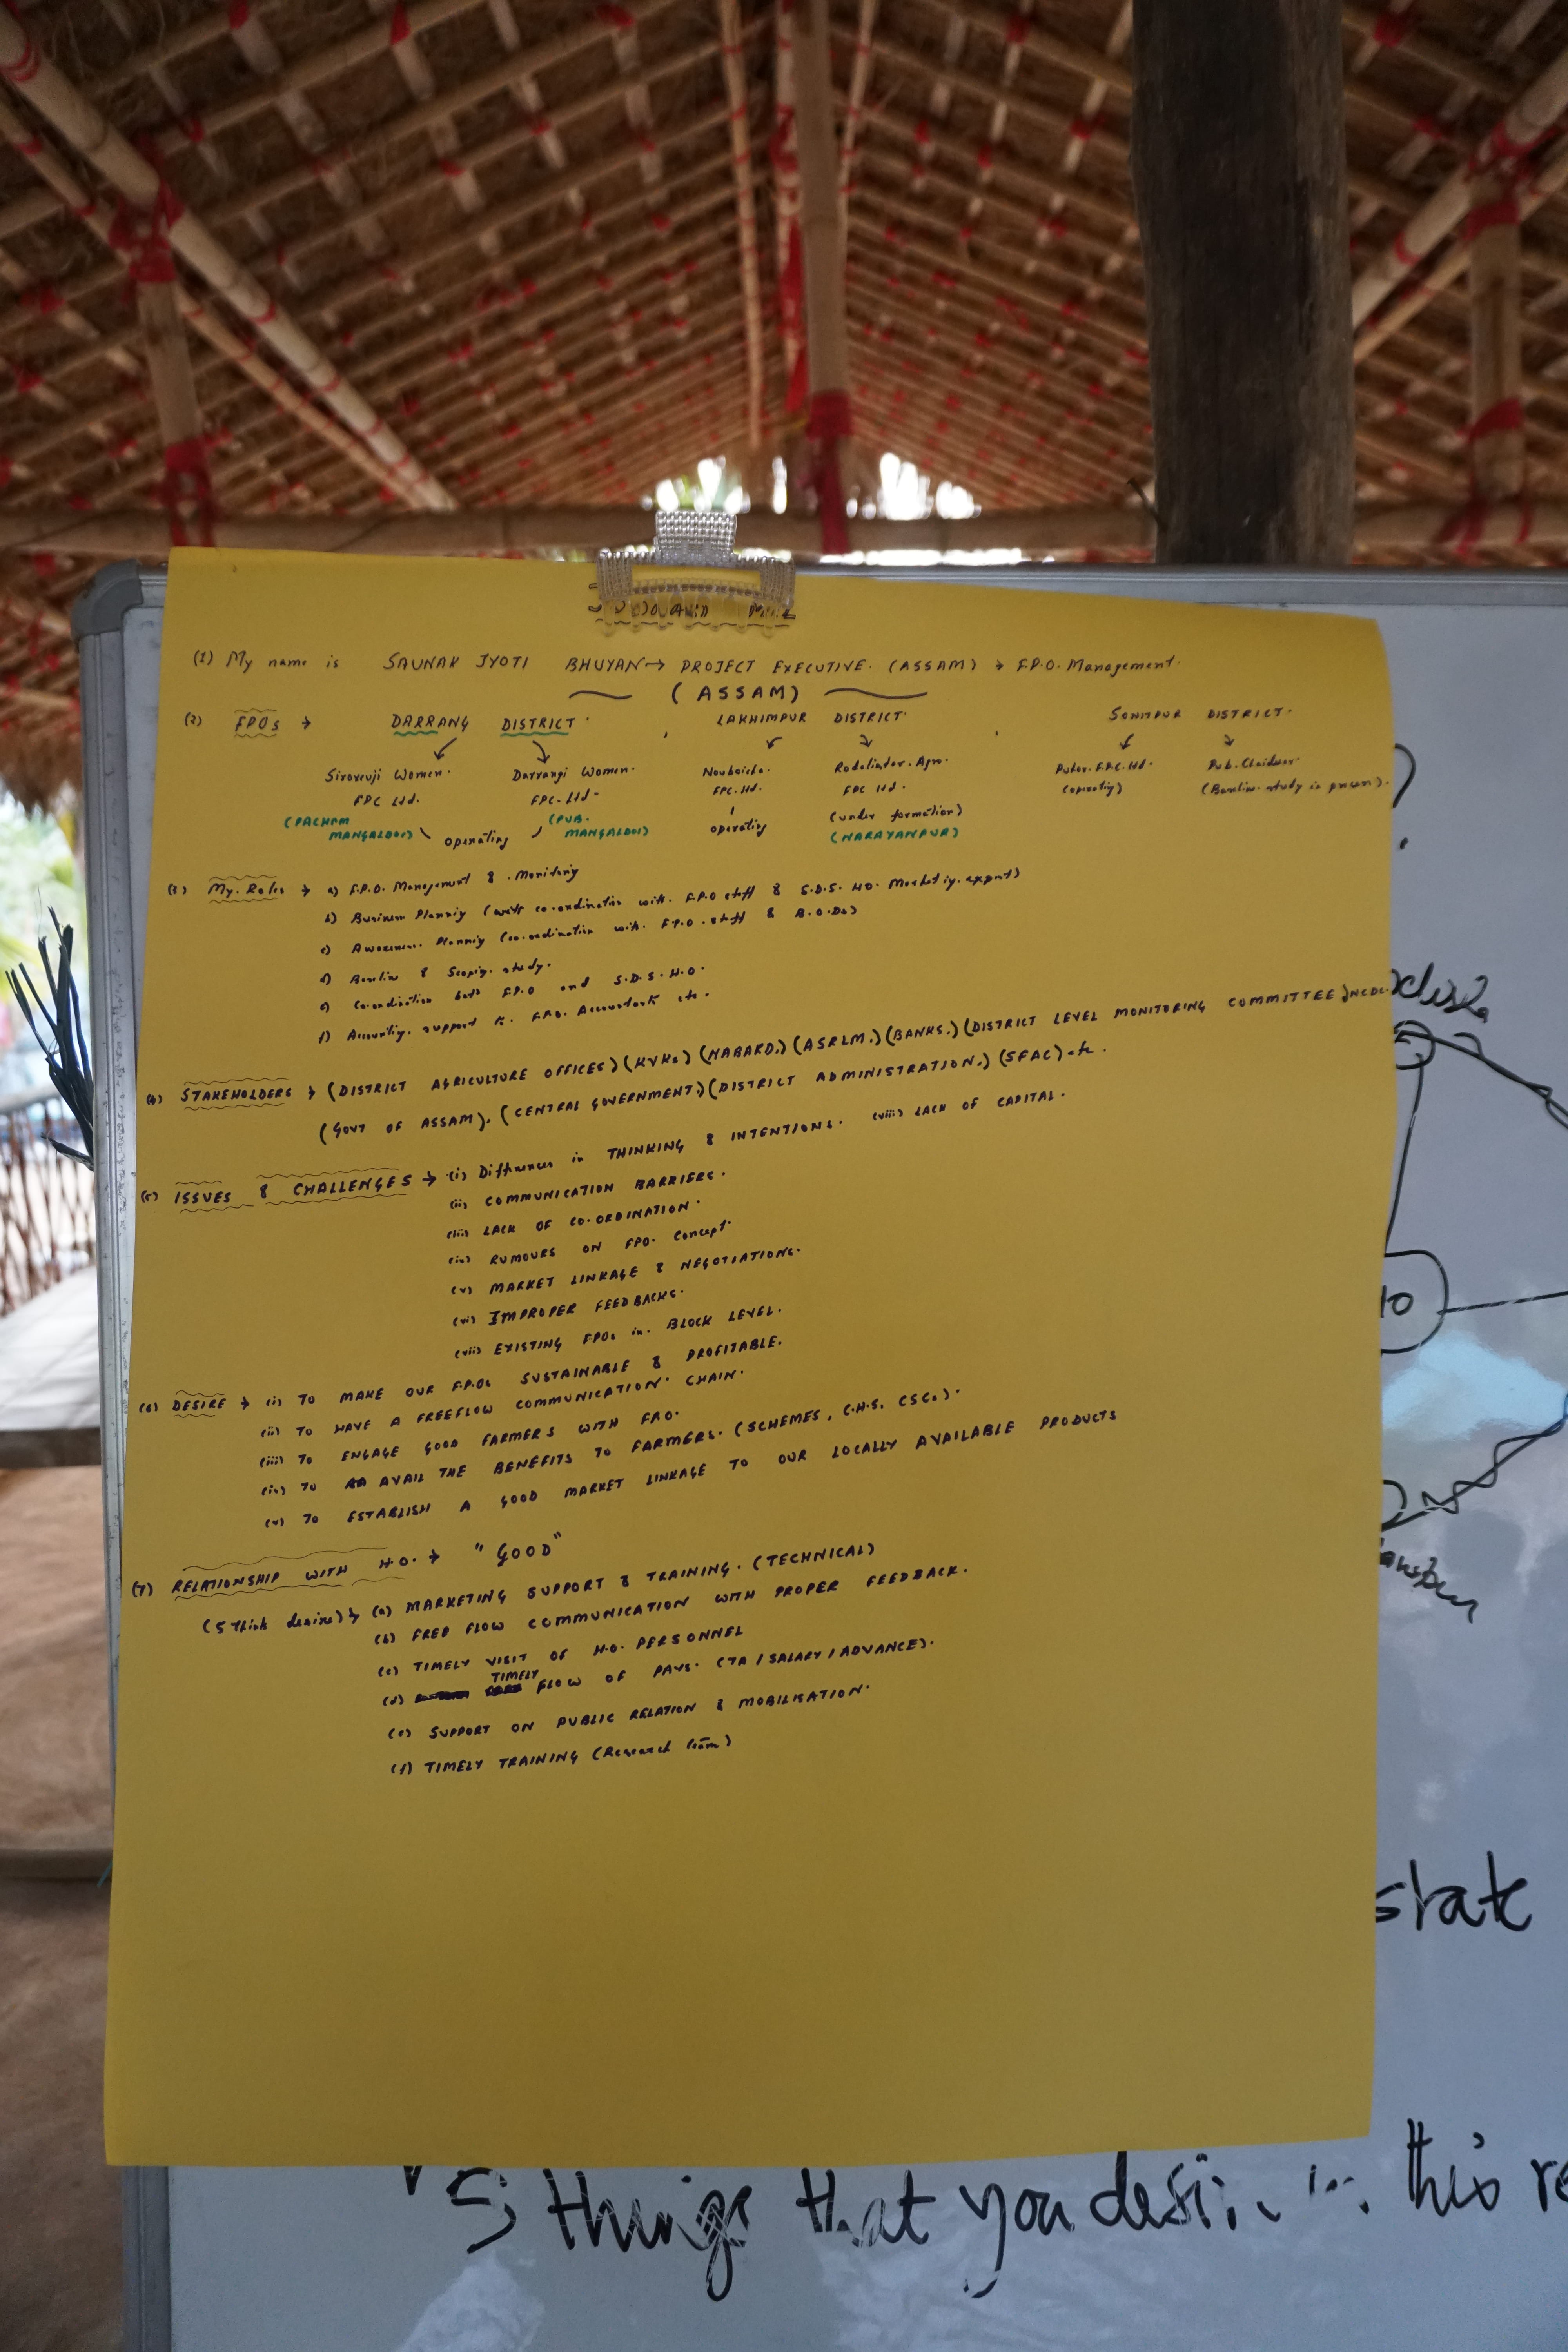 (1) My name is SAUNAK JYOTI BHUYAN → PROJECT EXECUTIVE. (ASSAM) → F.P.O. Management.
(ASSAM)
(2) FPOs → DARRANG DISTRICT. , LAKHIMPUR DISTRICT. , SONITPUR DISTRICT.
Women. Darrangi Women. Nouboicha. Agro. Pub.
FPC Ltd. FPC. Ltd. FPC. Ltd. FPC Ltd. F.P.C. Ltd. (Baseline study in process).
(PACHIM MANGALDOI) (PUB. MANGALDOI) (under formation) (operating)
operating operating (NARAYANPUR)
(3) My Roles → a) F.P.O. Management & Monitoring
b) Business Planning (with co-ordination with F.P.O staff & S.D.S. HO. Marketing expert)
c) Awareness Planning (co-ordination with F.P.O. staff & B.O.Ds)
d) Baseline & Scoping study.
e) Co-ordination both F.P.O and S.D.S. H.O.
f) Accounting support to F.P.O. Accountants etc.
(4) STAKEHOLDERS → (DISTRICT AGRICULTURE OFFICES) (KVKs) (NABARD.) (ASRLM.) (BANKS.) (DISTRICT LEVEL MONITORING COMMITTEE) NCDC
(GOVT OF ASSAM). (CENTRAL GOVERNMENT.) (DISTRICT ADMINISTRATION.) (SFAC) etc.
(5) ISSUES & CHALLENGES → (i) Differences in THINKING & INTENTIONS. (viii) LACK OF CAPITAL.
(ii) COMMUNICATION BARRIERS.
(iii) LACK OF CO-ORDINATION.
(iv) RUMOURS ON FPO. Concept.
(v) MARKET LINKAGE & NEGOTIATIONS.
(vi) IMPROPER FEEDBACKS.
(vii) EXISTING FPOs in. BLOCK LEVEL.
(6) DESIRE → (i) TO MAKE OUR F.P.Os SUSTAINABLE & PROFITABLE.
(ii) TO HAVE A FREEFLOW COMMUNICATION. CHAIN.
(iii) TO ENGAGE GOOD FARMERS WITH FPO.
(iv) TO AVAIL THE BENEFITS TO FARMERS. (SCHEMES, C.H.S, CSCs).
(v) TO ESTABLISH A GOOD MARKET LINKAGE TO OUR LOCALLY AVAILABLE PRODUCTS
(7) RELATIONSHIP WITH H.O. → "GOOD"
(5 think desire) → (a) MARKETING SUPPORT & TRAINING. (TECHNICAL)
(b) FREE FLOW COMMUNICATION WITH PROPER FEEDBACK.
(c) TIMELY VISIT OF H.O. PERSONNEL
(d) TIMELY FLOW OF PAYS. (TA / SALARY / ADVANCE).
(e) SUPPORT ON PUBLIC RELATION & MOBILISATION.
(f) TIMELY TRAINING (Research team)
state
5 things that you desire in this re